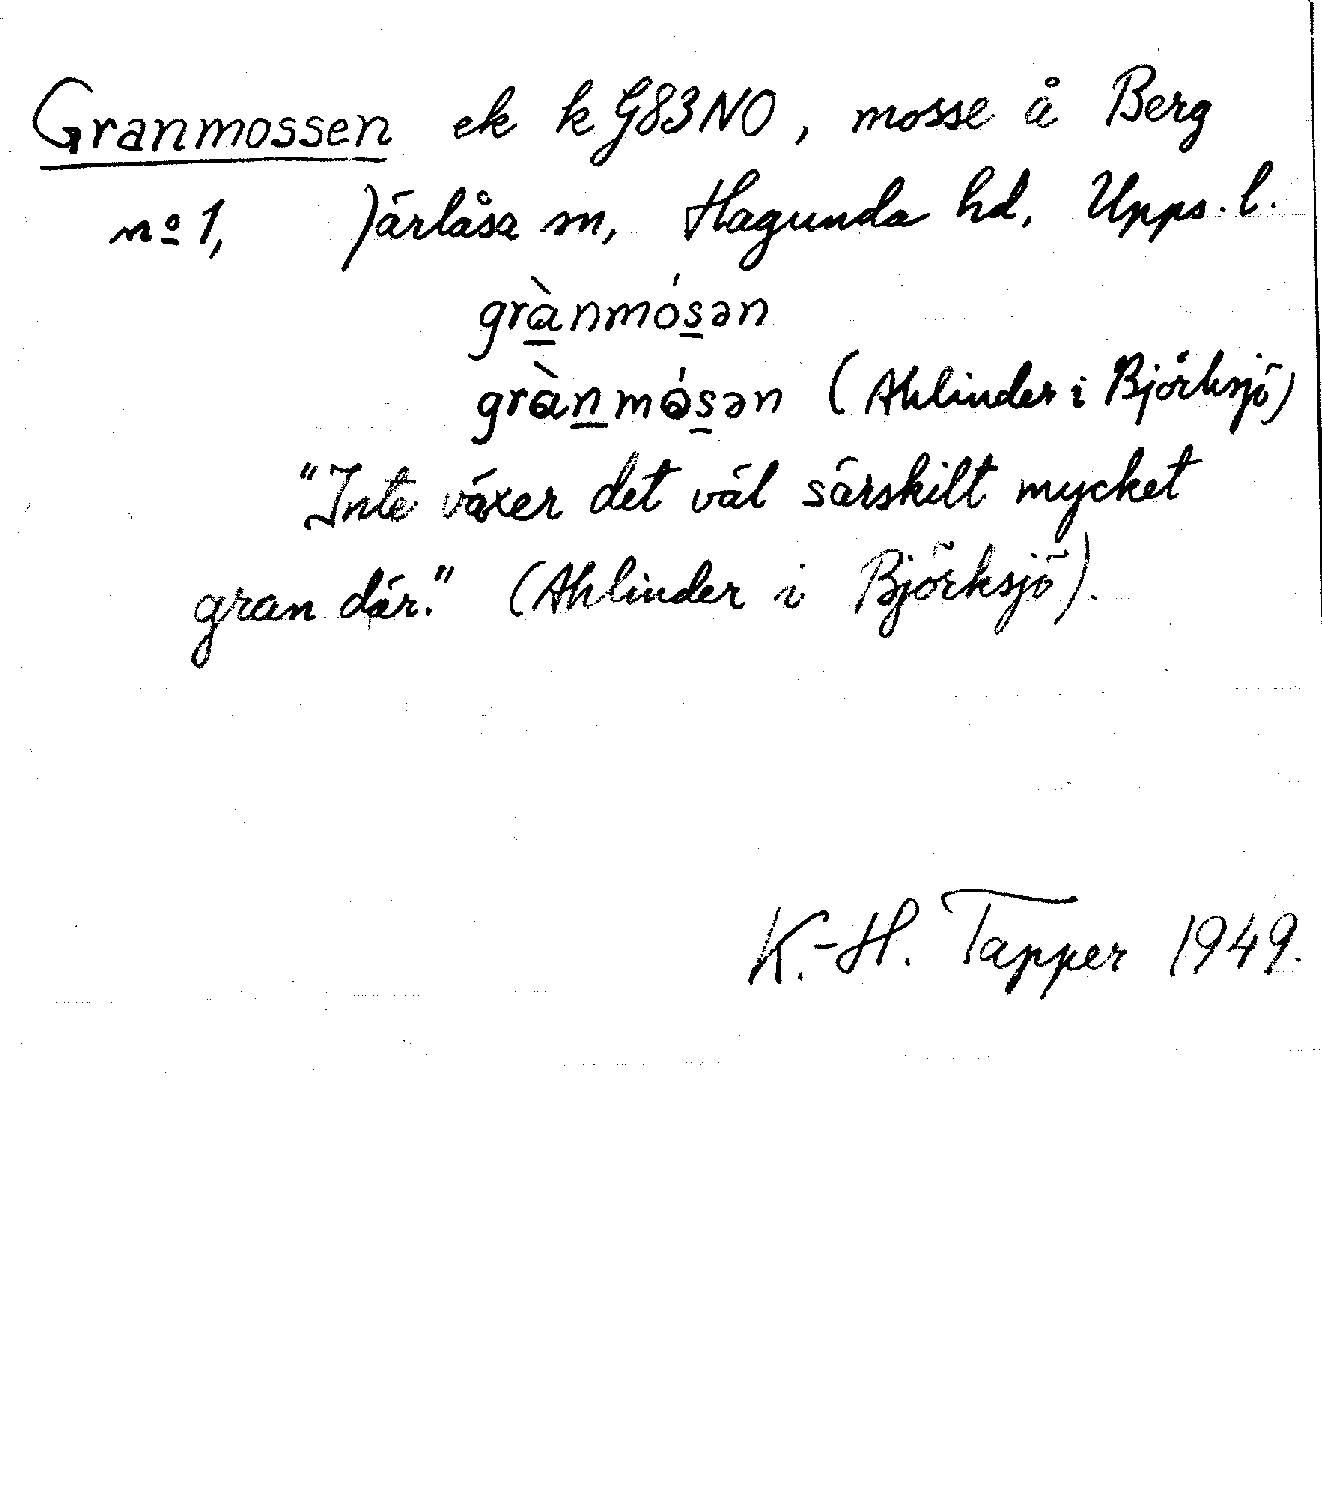 Granmossen ek k G83NO, mosse å Berg
nº 1, Järlåsa sn, Hagunda hd, Upps. l.
gràn̲mós̲ən
gràn̲mós̲ən (Ahlinder i Björksjö)
"Inte växer det väl särskilt mycket
gran där." (Ahlinder i Björksjö).
K.-H. Tapper 1949.